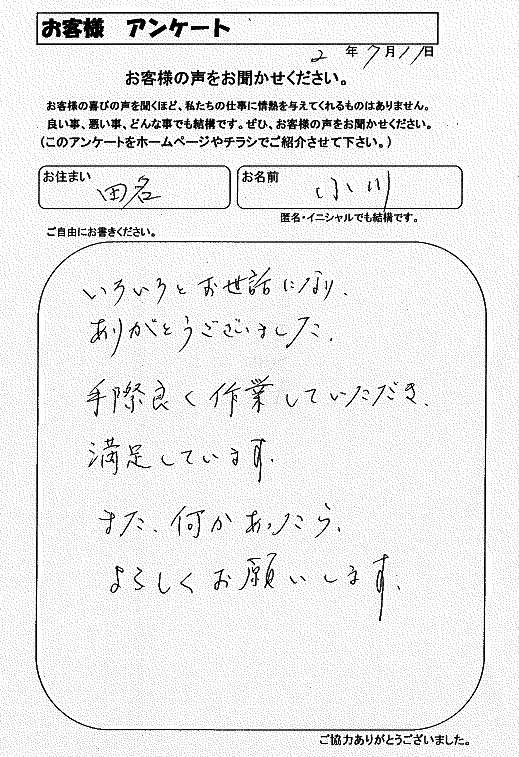 お客様 アンケート
2年7月11日
お客様の声をお聞かせください。
お客様の喜びの声を聞くほど、私たちの仕事に情熱を与えてくれるものはありません。
良い事、悪い事、どんな事でも結構です。ぜひ、お客様の声をお聞かせください。
(このアンケートをホームページやチラシでご紹介させて下さい。)
お住まい 田名
お名前 小川
匿名・イニシャルでも結構です。
ご自由にお書きください。
いろいろとお世話になり、
ありがとうございました。
手際良く作業していただき、
満足しています。
また、何かあったら、
よろしくお願いします。
ご協力ありがとうございました。